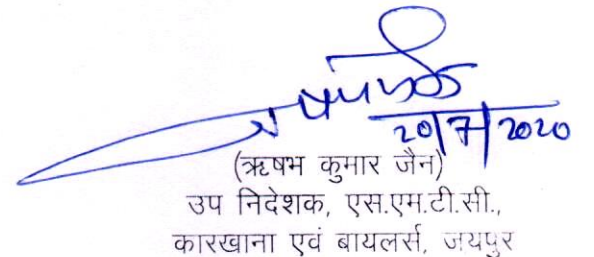 20/7/2020
(ऋषभ कुमार जैन)
उप निदेशक, एस.एम.टी.सी.,
कारखाना एवं बायलर्स, जयपुर